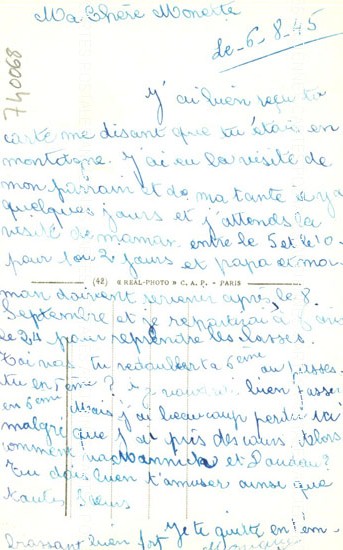 Ma Chère Monette
Le-6-8-45
740068
J'ai bien reçu ta
carte me disant que tu étais en
montagne. J'ai eu la visite de
mon parrain et de ma tante il y a
quelques jours et j'attends la
visite de maman entre le 5 et le 10
pour 1 ou 2 jours et papa et ma-
(42) « REAL-PHOTO » C. A. P. - PARIS
man doivent revenir après le 8
Septembre et je repartirai à
le 24 pour reprendre les classes.
Toi vas-tu redoubler ta 6ème ou passes-
tu en 5ème ? bien passer
en 6ème Mais j'ai beaucoup perdu ici
malgré que j'ai pris des cours. Alors
comment va Mannick et Doudou ?
Tu dois bien t'amuser ainsi que
Je te quitte en t'em-
brassant bien fort